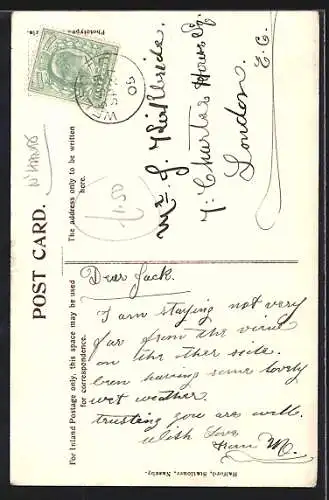 POST CARD.
For Inland Postage only, this space may be used
for correspondence.
The address only to be written
here.
N'HANTS
1/.50
Mr J.
7. Charter House Sq.
London.
E.C.
Dear Jack.
I am staying not very
far from the view
on the other side.
Been having some lovely
wet weather.
trusting you are well.
With Love
from M.
Halford, Stationer, Naseby.